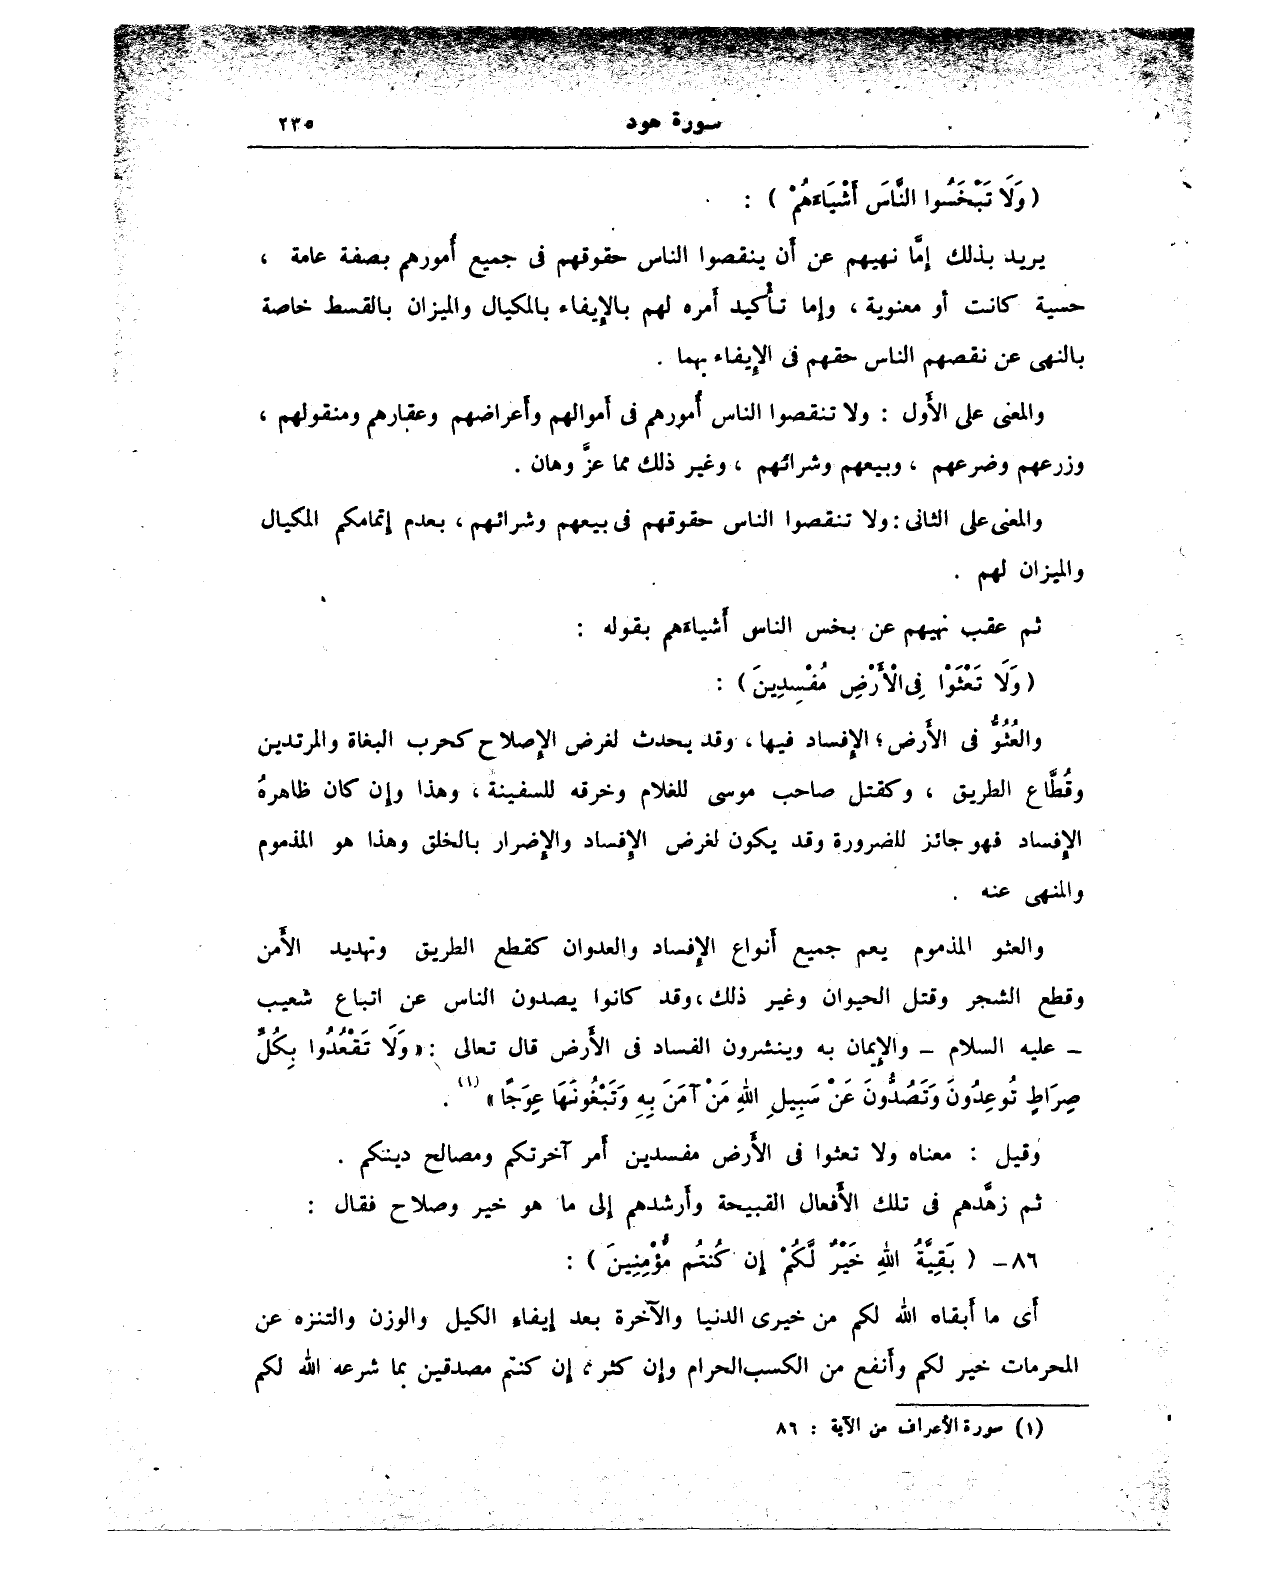 سورة هود ٢٣٥
( وَلَا تَبْخَسُوا النَّاسَ أَشْيَاءَهُمْ ) :
يريد بذلك إمَّا نهيهم عن أَن ينقصوا الناس حقوقهم فى جميع أُمورهم بصفة عامة ،
حسية كانت أو معنوية ، وإما تأكيد أمره لهم بالإيفاء بالمكيال والميزان بالقسط خاصة
بالنهى عن نقصهم الناس حقهم فى الإيفاء بهما .
والمعنى على الأَول : ولا تنقصوا الناس أُمورهم فى أَموالهم وأَعراضهم وعقارهم ومنقولهم ،
وزرعهم وضرعهم ، وبيعهم وشرائهم ، وغير ذلك مما عزَّ وهان .
والمعنى على الثانى : ولا تنقصوا الناس حقوقهم فى بيعهم وشرائهم ، بعدم إتمامكم المكيال
والميزان لهم .
ثم عقب نهيهم عن بخس الناس أَشياءَهم بقوله :
( وَلَا تَعْثَوْا فِى الْأَرْضِ مُفْسِدِينَ ) :
والعُثُوُّ فى الأَرض ؛ الإفساد فيها ، وقد يحدث لغرض الإصلاح كحرب البغاة والمرتدين
وقُطَّاع الطريق ، وكقتل صاحب موسى للغلام وخرقه للسفينة ، وهذا وإن كان ظاهرهُ
الإفساد فهو جائز للضرورة وقد يكون لغرض الإفساد والإضرار بالخلق وهذا هو المذموم
والمنهى عنه .
والعثو المذموم يعم جميع أَنواع الإفساد والعدوان كقطع الطريق وتهديد الأَمن
وقطع الشجر وقتل الحيوان وغير ذلك ، وقد كانوا يصدون الناس عن اتباع شعيب
ـ عليه السلام ـ والإيمان به وينشرون الفساد فى الأَرض قال تعالى : « وَلَا تَقْعُدُوا بِكُلِّ
صِرَاطٍ تُوعِدُونَ وَتَصُدُّونَ عَنْ سَبِيلِ اللهِ مَنْ آمَنَ بِهِ وَتَبْغُونَهَا عِوَجًا » (١) .
وقيل : معناه ولا تعثوا فى الأَرض مفسدين أَمر آخرتكم ومصالح دينكم .
ثم زهَّدهم فى تلك الأَفعال القبيحة وأَرشدهم إلى ما هو خير وصلاح فقال :
٨٦ ـ ( بَقِيَّةُ اللهِ خَيْرٌ لَّكُمْ إِن كُنتُم مُّؤْمِنِينَ ) :
أَى ما أَبقاه الله لكم من خيرى الدنيا والآخرة بعد إيفاء الكيل والوزن والتنزه عن
المحرمات خير لكم وأَنفع من الكسب الحرام وإن كثر ، إن كنتم مصدقين بما شرعه الله لكم
(١) سورة الأعراف من الآية : ٨٦